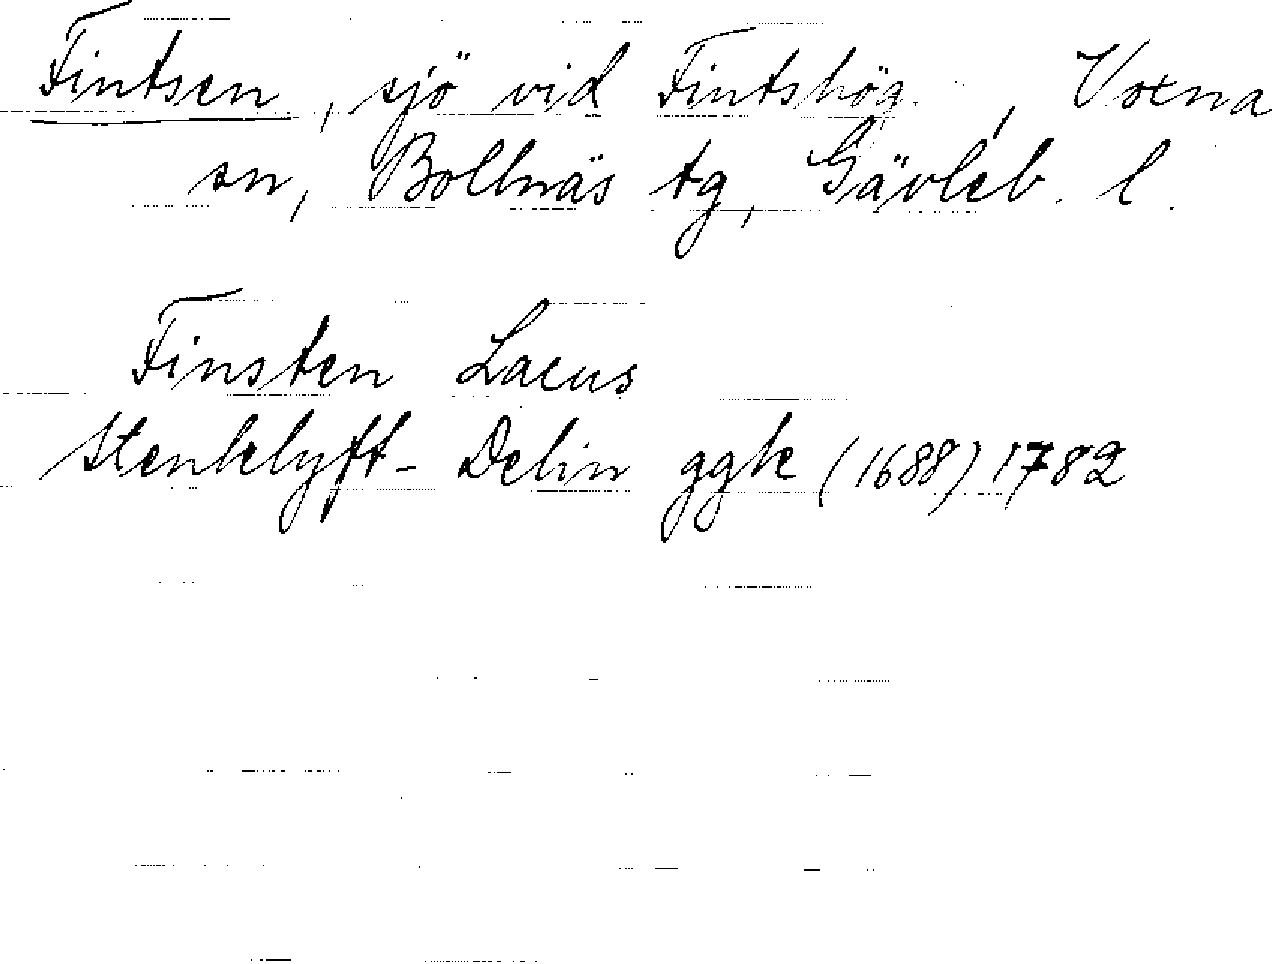 Fintsen, sjö vid Fintshög., Voxna
sn, Bollnäs tg, Gävleb. l.
Finsten Lacus
Stenklyft- Delin ggk (1688) 1782